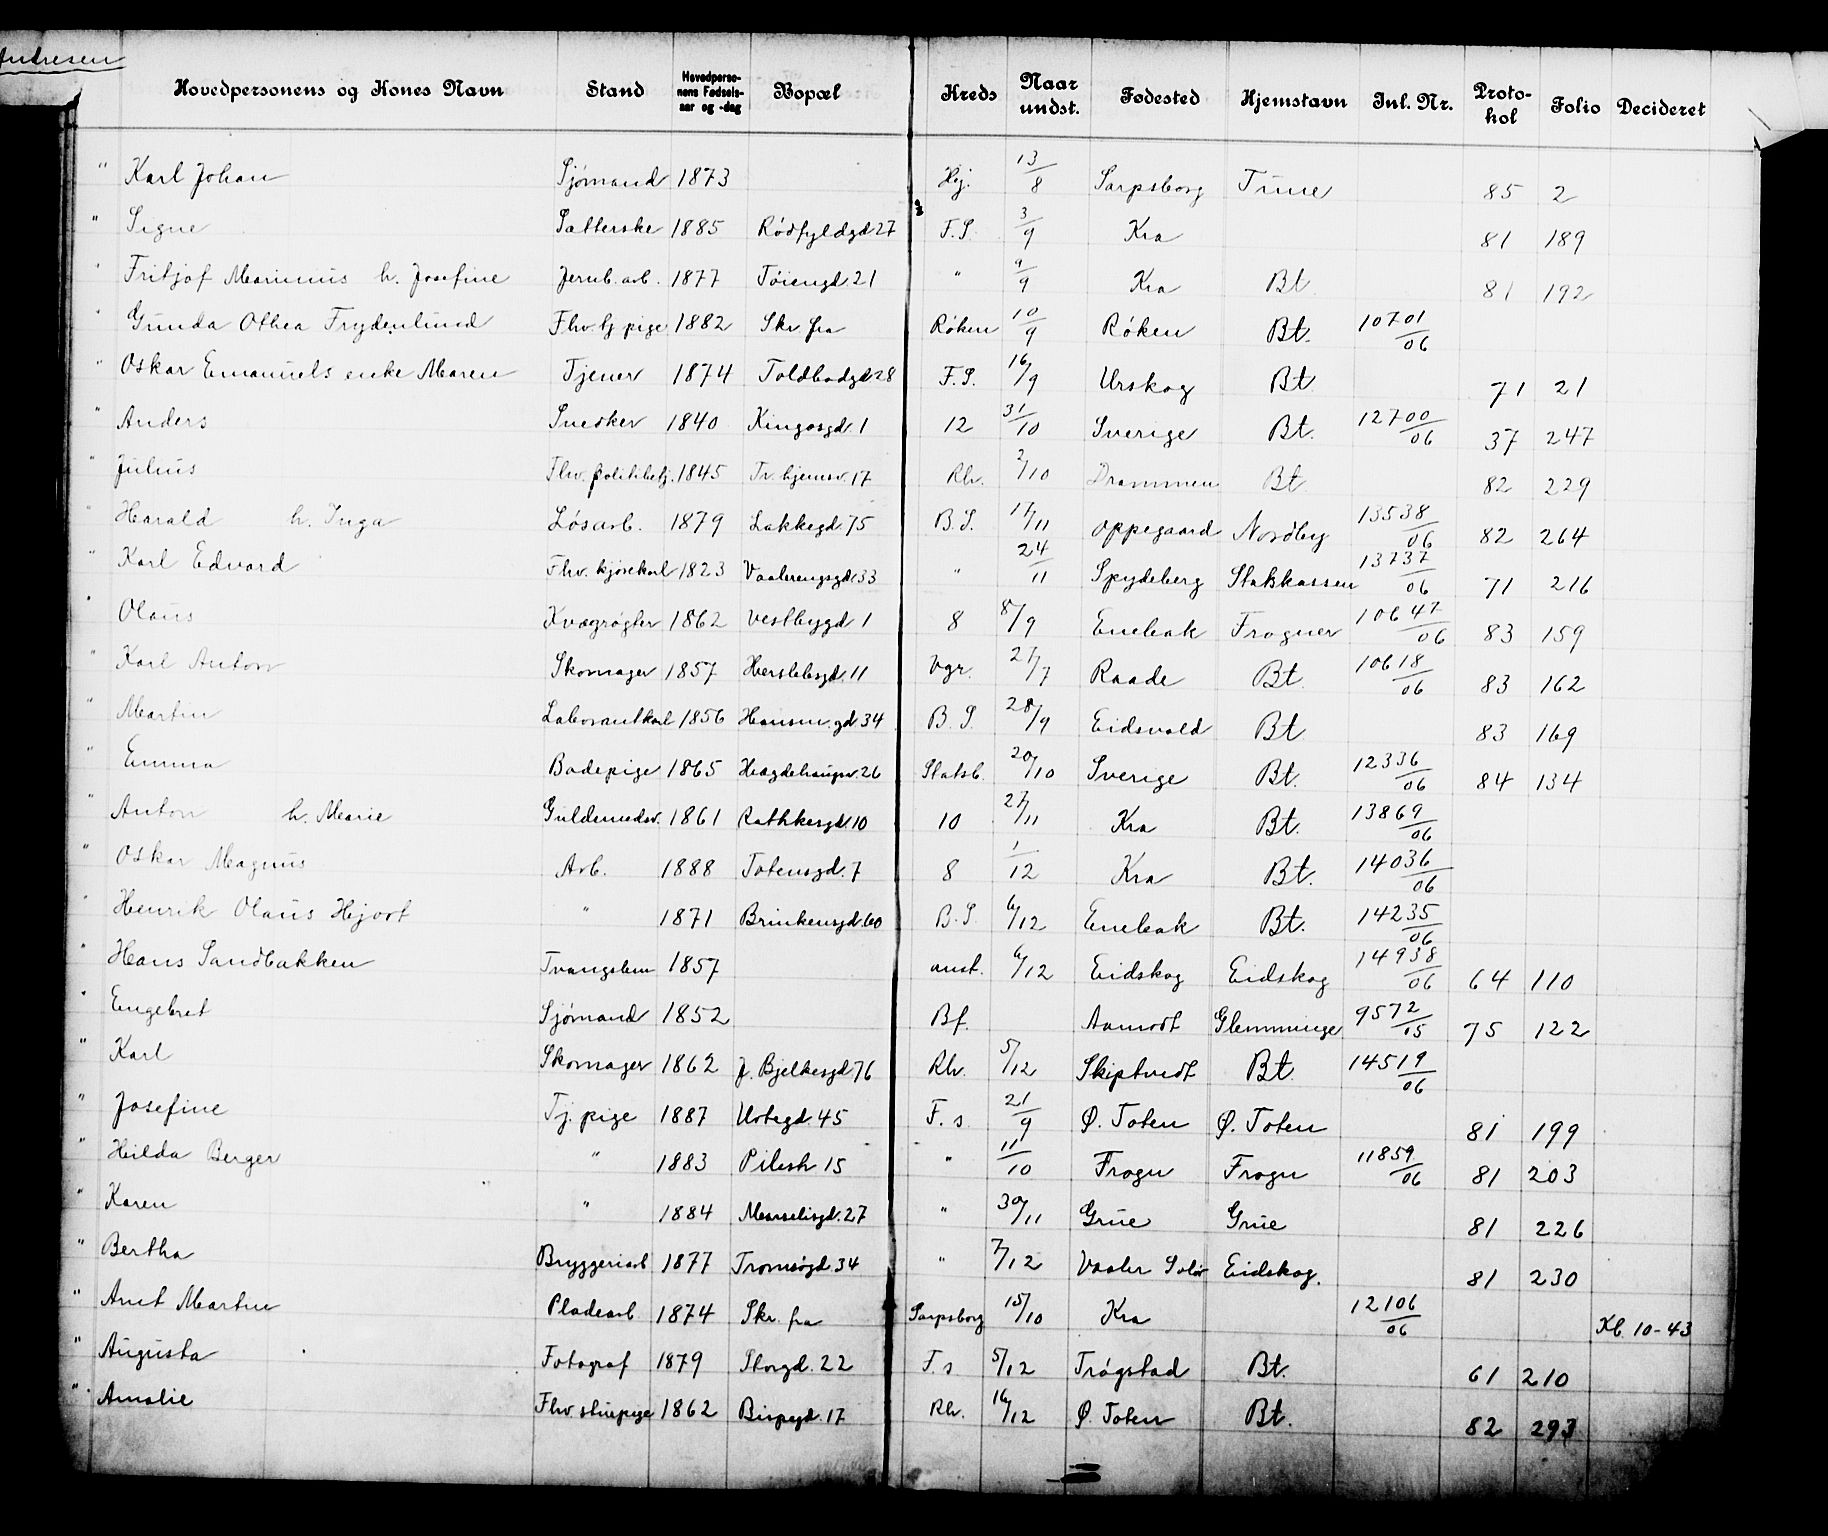 Andresen
Hovedpersonens og Kones Navn Stand Hovedpersonens Fødselsaar og -dag Bopæl Kreds Naar undst. Fødested Hjemstavn Inl. Nr. Protokol Folio Decideret
" Karl Johan Sjømand 1873 Hj. 13/8 Sarpsborg Tune 85 2
" Signe 1885 Rødfyldgd 27 F.S. 3/9 Kra 81 189
" Fritjof Marinius h. Josefine Jernb. arb. 1877 Tøiengd 21 " 9/9 Kra Bt 81 192
" Gunda Othea Frydenlund Fhv. tj. pige 1882 Skr. fra Røken 10/9 Røken Bt. 10701/06
" Oskar Emanuels enke Maren Tjener 1874 Toldbodgd 28 F.S. 16/9 Urskog Bt 71 21
" Anders Snedker 1840 Kingosgd. 1 12 31/10 Sverige Bt. 12700/06 37 247
" Julius Fhv. politibetj. 1845 Tv. hjemsv. 17 Rh. 2/10 Drammen Bt 82 229
" Harald h. Inga Løsarb. 1879 Lakkegd. 75 B.S. 17/11 Oppegaard Nordby 13538/06 82 264
" Karl Edvard Fhv. kjørekarl 1823 Vaalerengsgd. 33 " 24/11 Spydeberg Statskassen 13737/06 71 216
" Olaus Kvægrøgter 1862 Vestbygd 1 8 8/9 Enebak Frogner 10647/06 83 159
" Karl Anton Skomager 1857 Herslebsgd. 11 Vgr. 27/7 Raade Bt. 10618/06 83 162
" Martin Laborantkarl 1856 Hausm. gd 34 B.S. 28/9 Eidsvold Bt 83 169
" Emma Badepige 1865 Hægdehaugsv. 26 Statsb. 20/10 Sverige Bt. 12336/06 84 134
" Anton h. Marie Guldsmedsv. 1861 Rathkesgd 10 10 27/11 Kra Bt. 13869/06
" Oskar Magnus Arb. 1888 Totensgd. 7 8 1/12 Kra Bt. 14036/06
" Henrik Olaus Hjort " 1871 Brinkensgd. 60 B.S. 6/12 Enebak Bt. 14235/06
" Hans Sandbakken Tvangslem 1857 anst. 6/12 Eidskog Eidskog 14938/06 64 110
" Engebret Sjømand 1852 Bf. Aamodt Glemminge 9572/05 75 122
" Karl Skomager 1862 J. Bjelkesgd 76 Rh. 5/12 Skiptvedt Bt. 14519/06
" Josefine Tj. pige 1887 Urtegd. 45 F. s. 21/9 Ø. Toten Ø. Toten 81 199
" Hilda Berger " 1883 Pilestr. 15 " 11/10 Frogn Frogn 11859/06 81 203
" Karen " 1884 Marselisgd. 27 " 30/11 Grue Grue 81 226
" Bertha Bryggeriarb 1877 Tromsøgd. 34 " 7/12 Vaaler Solør Eidskog. 81 230
" Arnt Martin Pladearb 1874 Skr. fra Sarpsborg 15/10 Kra 12106/06 Kl. 10-43
" Augusta Fotograf 1879 Storgd. 22 F. s. 5/12 Trøgstad Bt. 61 210
" Amalie Fhv. stuepige 1862 Bispegd. 17 Rh. 16/12 Ø. Toten Bt. 82 293